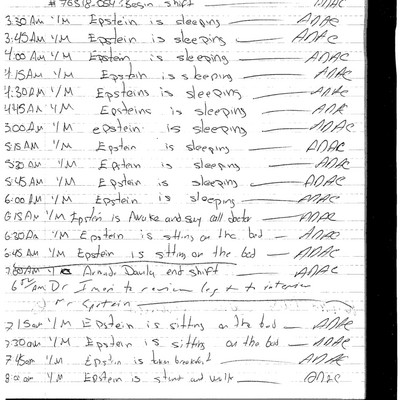 #76318-054 Begin shift ADAC
3:30 AM I/M Epstein is sleeping ADAC
3:45 AM I/M Epstein is sleeping ADAC
4:00 AM I/M Epstein is sleeping ADAC
4:15 AM I/M Epstein is sleeping ADAC
4:30 AM I/M Epstein is sleeping ADAC
4:45 AM I/M Epsteins is sleeping ADAC
5:00 AM I/M epstein is sleeping ADAC
5:15 AM I/M Epstein is sleeping ADAC
5:30 AM I/M Epstein is sleeping ADAC
5:45 AM I/M Epstein is sleeping ADAC
6:00 AM I/M Epstein is sleeping ADAC
6:15 AM I/M Epstein is Awake and say call doctor ADAC
6:30 AM I/M Epstein is sitting on the bed ADAC
6:45 AM I/M Epstein is sitting on the bed ADAC
7:00 AM end shift ADAC
Dr to review log & to interview
Mr Epstein
7:15 am I/M Epstein is sitting on the bed ADAC
7:30 AM I/M Epstein is sitting on the bed ADAC
7:45 am I/M Epstein is taken breakfast ADAC
8:00 am I/M Epstein is stand and walk ADAC